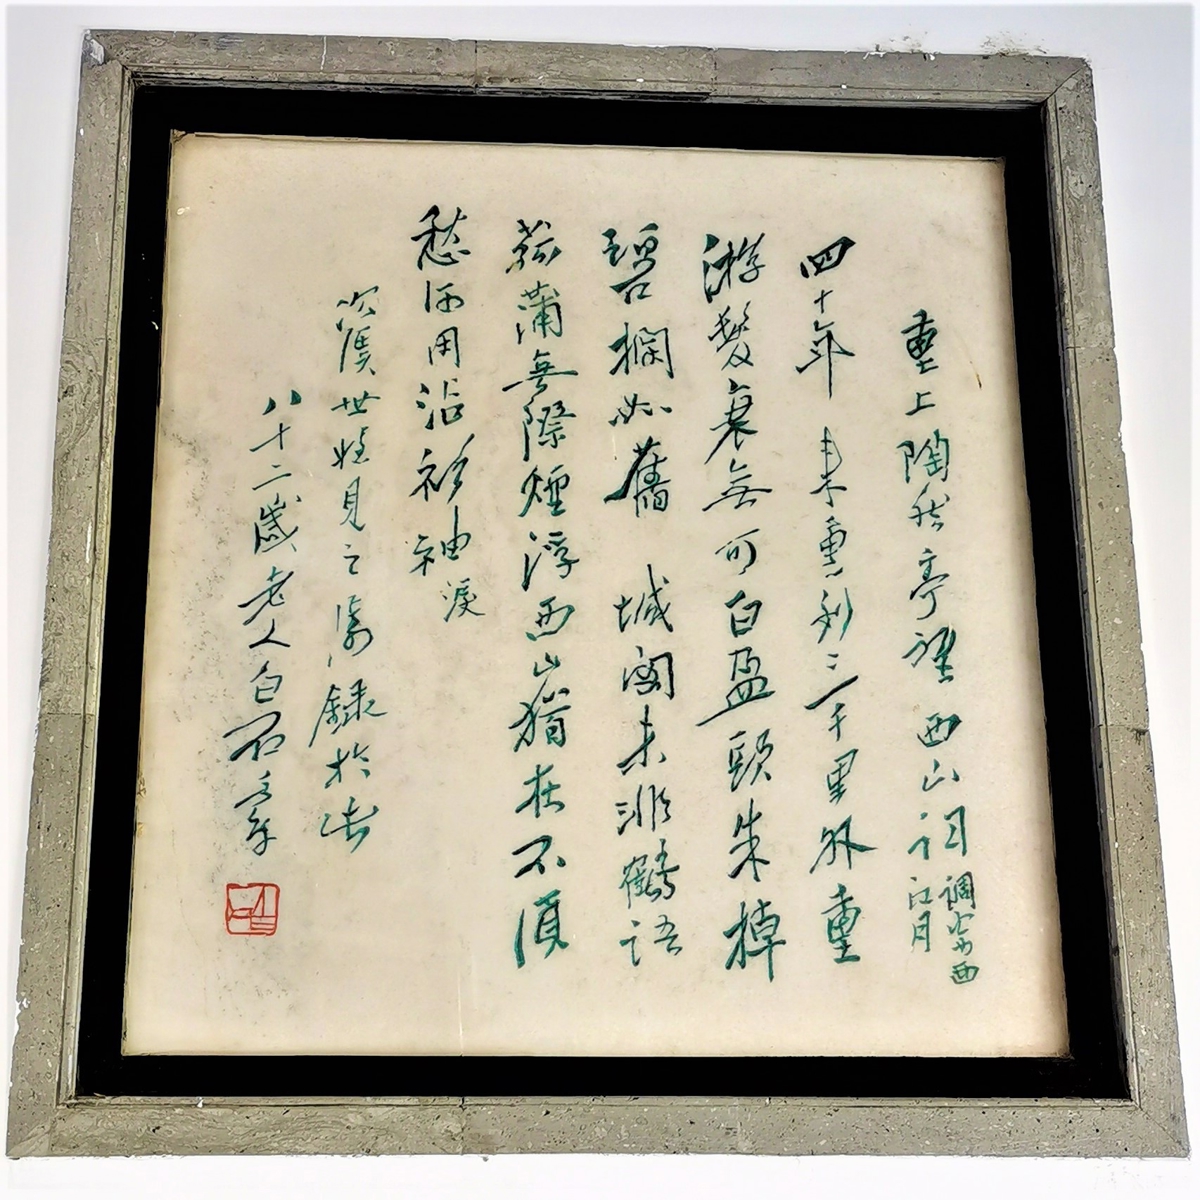 重上陶然亭望西山詞 調寄西江月
四十年來重到三千里外重
游髮衰無可白盈頭朱棹
碧欄如舊 城未非鶴語
菰蒲無際煙浮西山猶在不須
愁何用沾衫袖 淚
次溪世姪見之錄於此
八十二歲老人白石